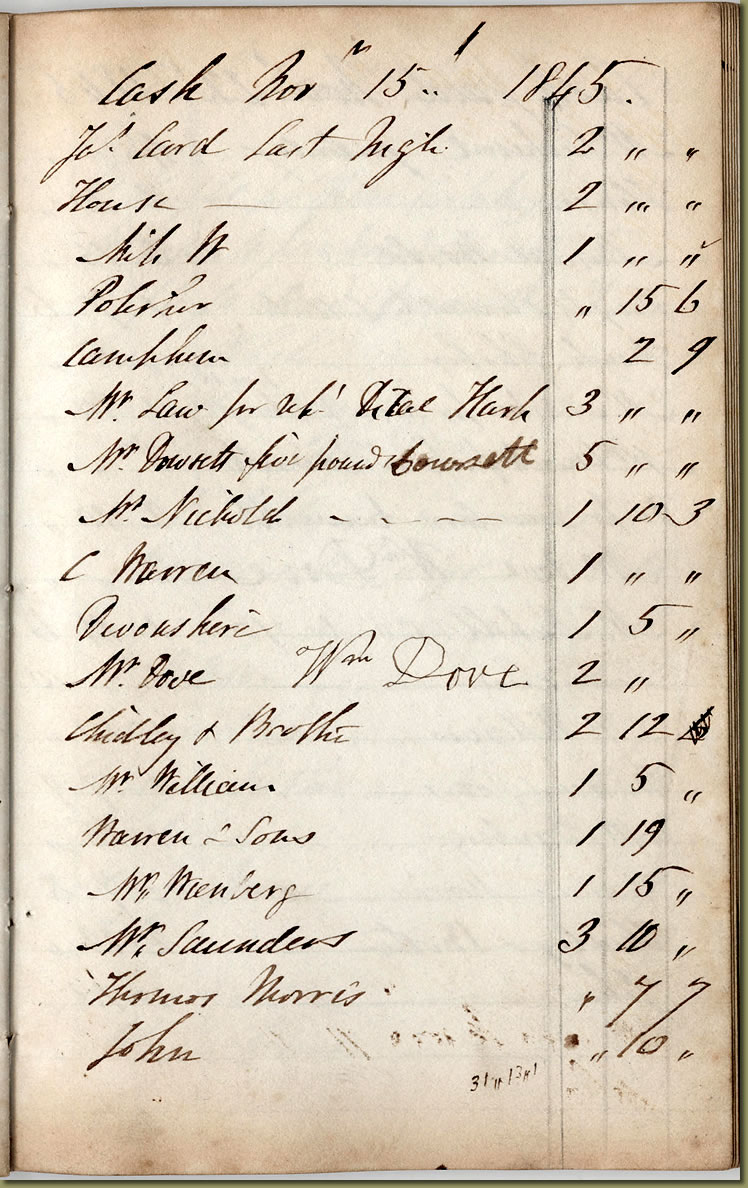 Cash Novr 15.. 1845.
Jas Card Last Nigh 2 " "
House — 2 " "
W 1 " "
" 15 6
Camphene 2 9
Mr. Law for Hark 3 " "
Mr. Dowsett five pounds Dowsett 5 " "
Mr. Nichold - - - — 1 10 3
C Warren 1 " "
Devonshere 1 5 "
Mr. Dove Wm Dove 2 "
Chidley & Brothe 2 12
Mr. William 1 5 "
Warren & Sons 1 19
Mr. Wienberg 1 15 "
Mr. Saunders 3 10 "
Thomas Morris " 7 7
John " 10 "
31 " 13 " 1